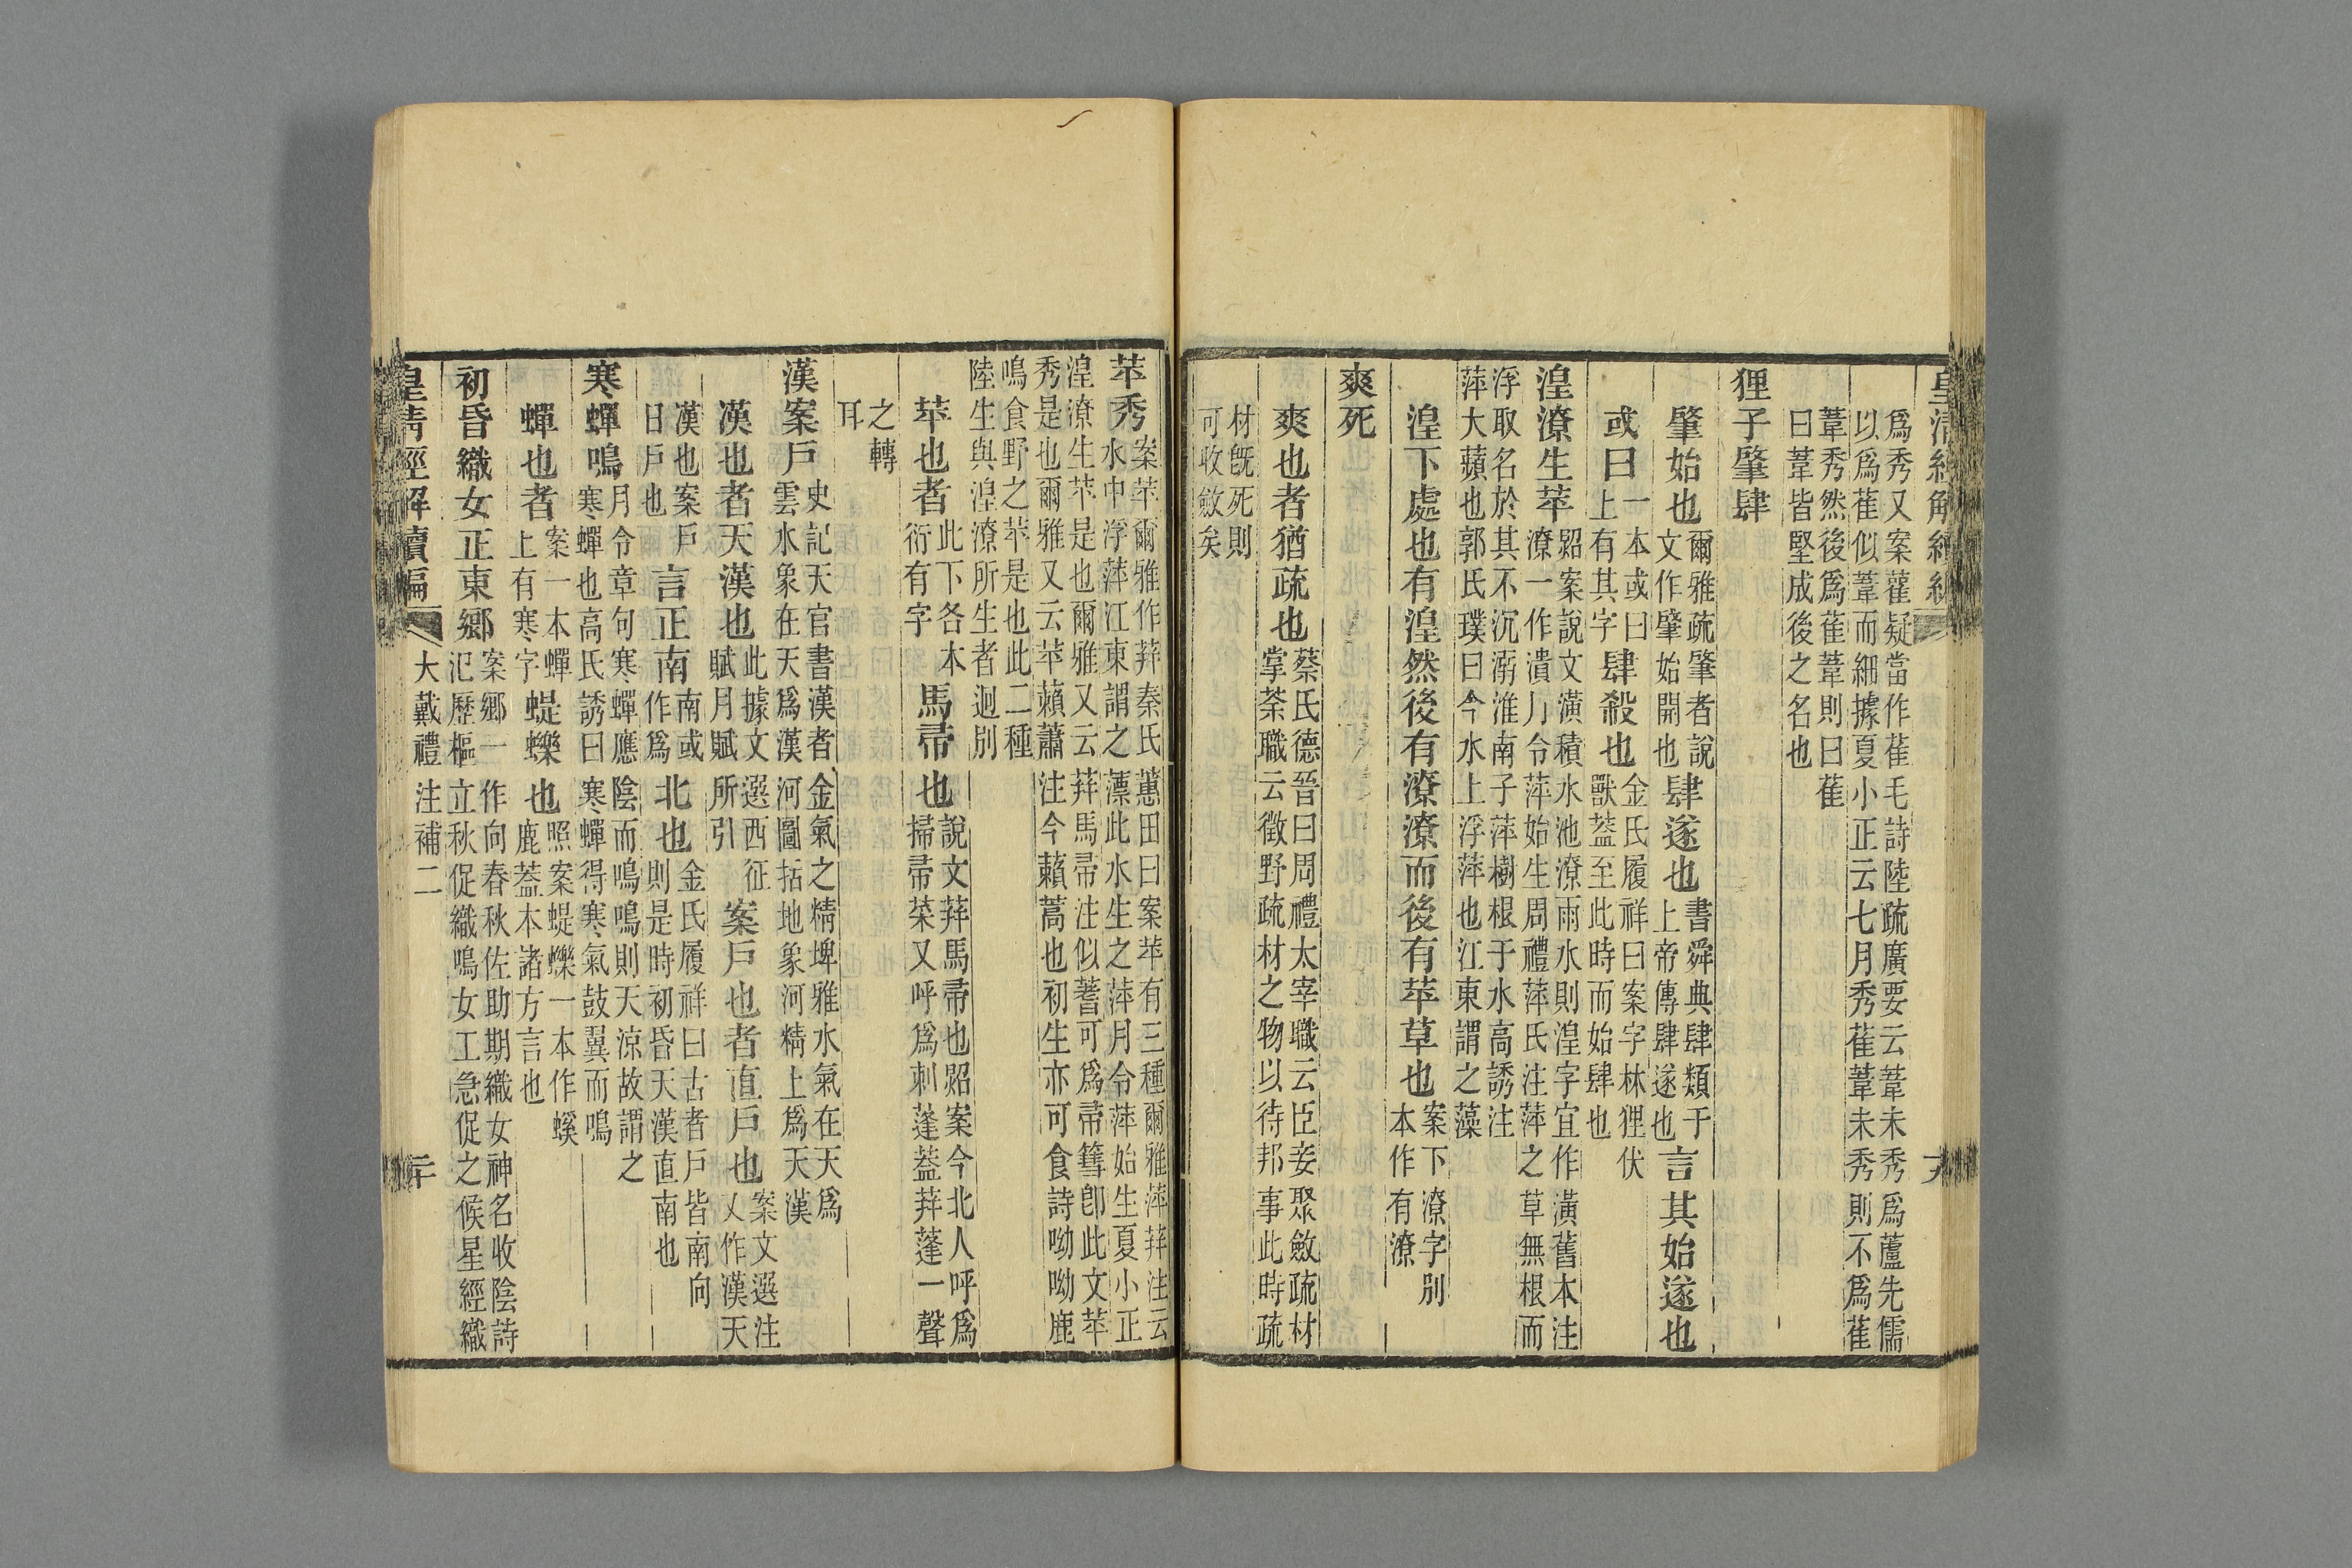 皇清經解續編
爲秀又案雚疑當作萑毛詩陸疏廣要云葦未秀爲蘆先儒
以爲萑似葦而細據夏小正云七月秀萑葦未秀則不爲萑
葦秀然後爲萑葦則曰萑
曰葦皆堅成後之名也
狸子肇肆
肇始也爾雅疏肇者說文作肇始開也肆遂也書舜典肆類于上帝傳肆遂也言其始遂也
或曰一本或曰上有其字肆殺也金氏履祥曰案字林狸伏獸蓋至此時而始肆也
湟潦生苹㷖案說文潢積水池潦雨水則湟字宜作潢舊本注
潦一作潰月令萍始生周禮萍氏注萍之草無根而
浮取名於其不沉溺淮南子萍樹根于水高誘注
萍大蘋也郭氏璞曰今水上浮萍也江東謂之藻
湟下處也有湟然後有潦潦而後有苹草也案下潦字別本作有潦
爽死
爽也者猶疏也蔡氏德晉曰周禮太宰職云臣妾聚斂疏材
掌荼職云徵野疏材之物以待邦事此時疏
材旣死則
可收斂矣
苹秀案苹爾雅作荓秦氏蕙田曰案苹有三種爾雅萍荓注云
水中浮萍江東謂之薸此水生之萍月令萍始生夏小正
湟潦生苹是也爾雅又云荓馬帚注似蓍可爲帚篲卽此文苹
秀是也爾雅又云苹藾蕭注今藾蒿也初生亦可食詩呦呦鹿
鳴食野之苹是也此二種
陸生與湟潦所生者迥別
苹也者此下各本衍有字馬帚也說文荓馬帚也㷖案今北人呼爲
掃帚菜又呼爲刺蓬蓋荓蓬一聲
之轉
耳
漢案戶史記天官書漢者金氣之精埤雅水氣在天爲
雲水象在天爲漢河圖括地象河精上爲天漢
漢也者天漢也此據文選西征賦月賦所引案戶也者直戶也案文選注又作漢天
漢也案戶曰戶也言正南南或作爲北也金氏履祥曰古者戶皆南向則是時初昏天漢直南也
寒蟬鳴月令章句寒蟬應陰而鳴鳴則天涼故謂之
寒蟬也高氏誘曰寒蟬得寒氣鼓翼而鳴
蟬也者案一本蟬上有寒字蝭蠑也照案蝭蠑一本作螇鹿蓋本諸方言也
初昏織女正東鄉案鄉一作向春秋佐助期織女神名收陰詩
氾歷樞立秋促織鳴女工急促之候星經織
皇清經解續編
大戴禮注補二
二十